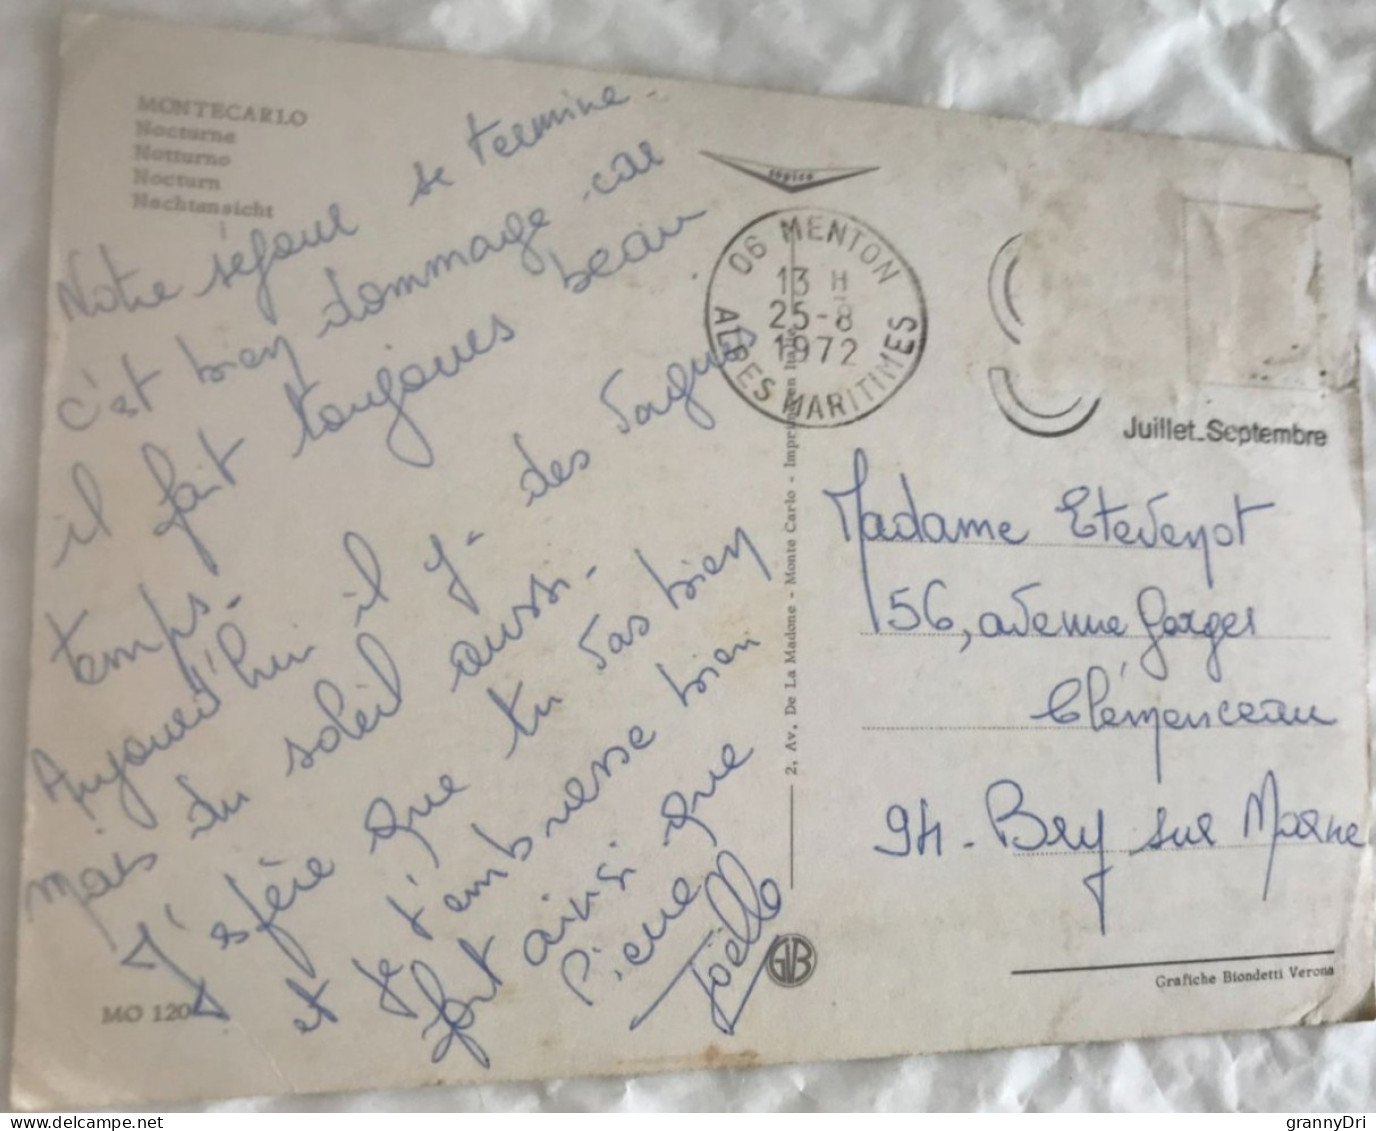 MONTECARLO
Nocturne
Notturno
Nocturn
Nachtansicht
Notre séjour se termine -
c'est bien dommage car
il fait toujours beau
temps -
Aujourd'hui il y - des vagues
mais du soleil aussi -
J'espère que tu vas bien
et je t'embrasse bien
fort ainsi que
Pierre
Joëlle
MO 120
06 MENTON
13 H
25-8
1972
ALPES MARITIMES
Juillet_Septembre
2, Av. De La Madone - Monte Carlo - Imprimé en Italie
Madame Etevenot
56, avenue Georges
Clémenceau
94 - Bry sur Marne
GVB
Grafiche Biondetti Verona
grannyDri